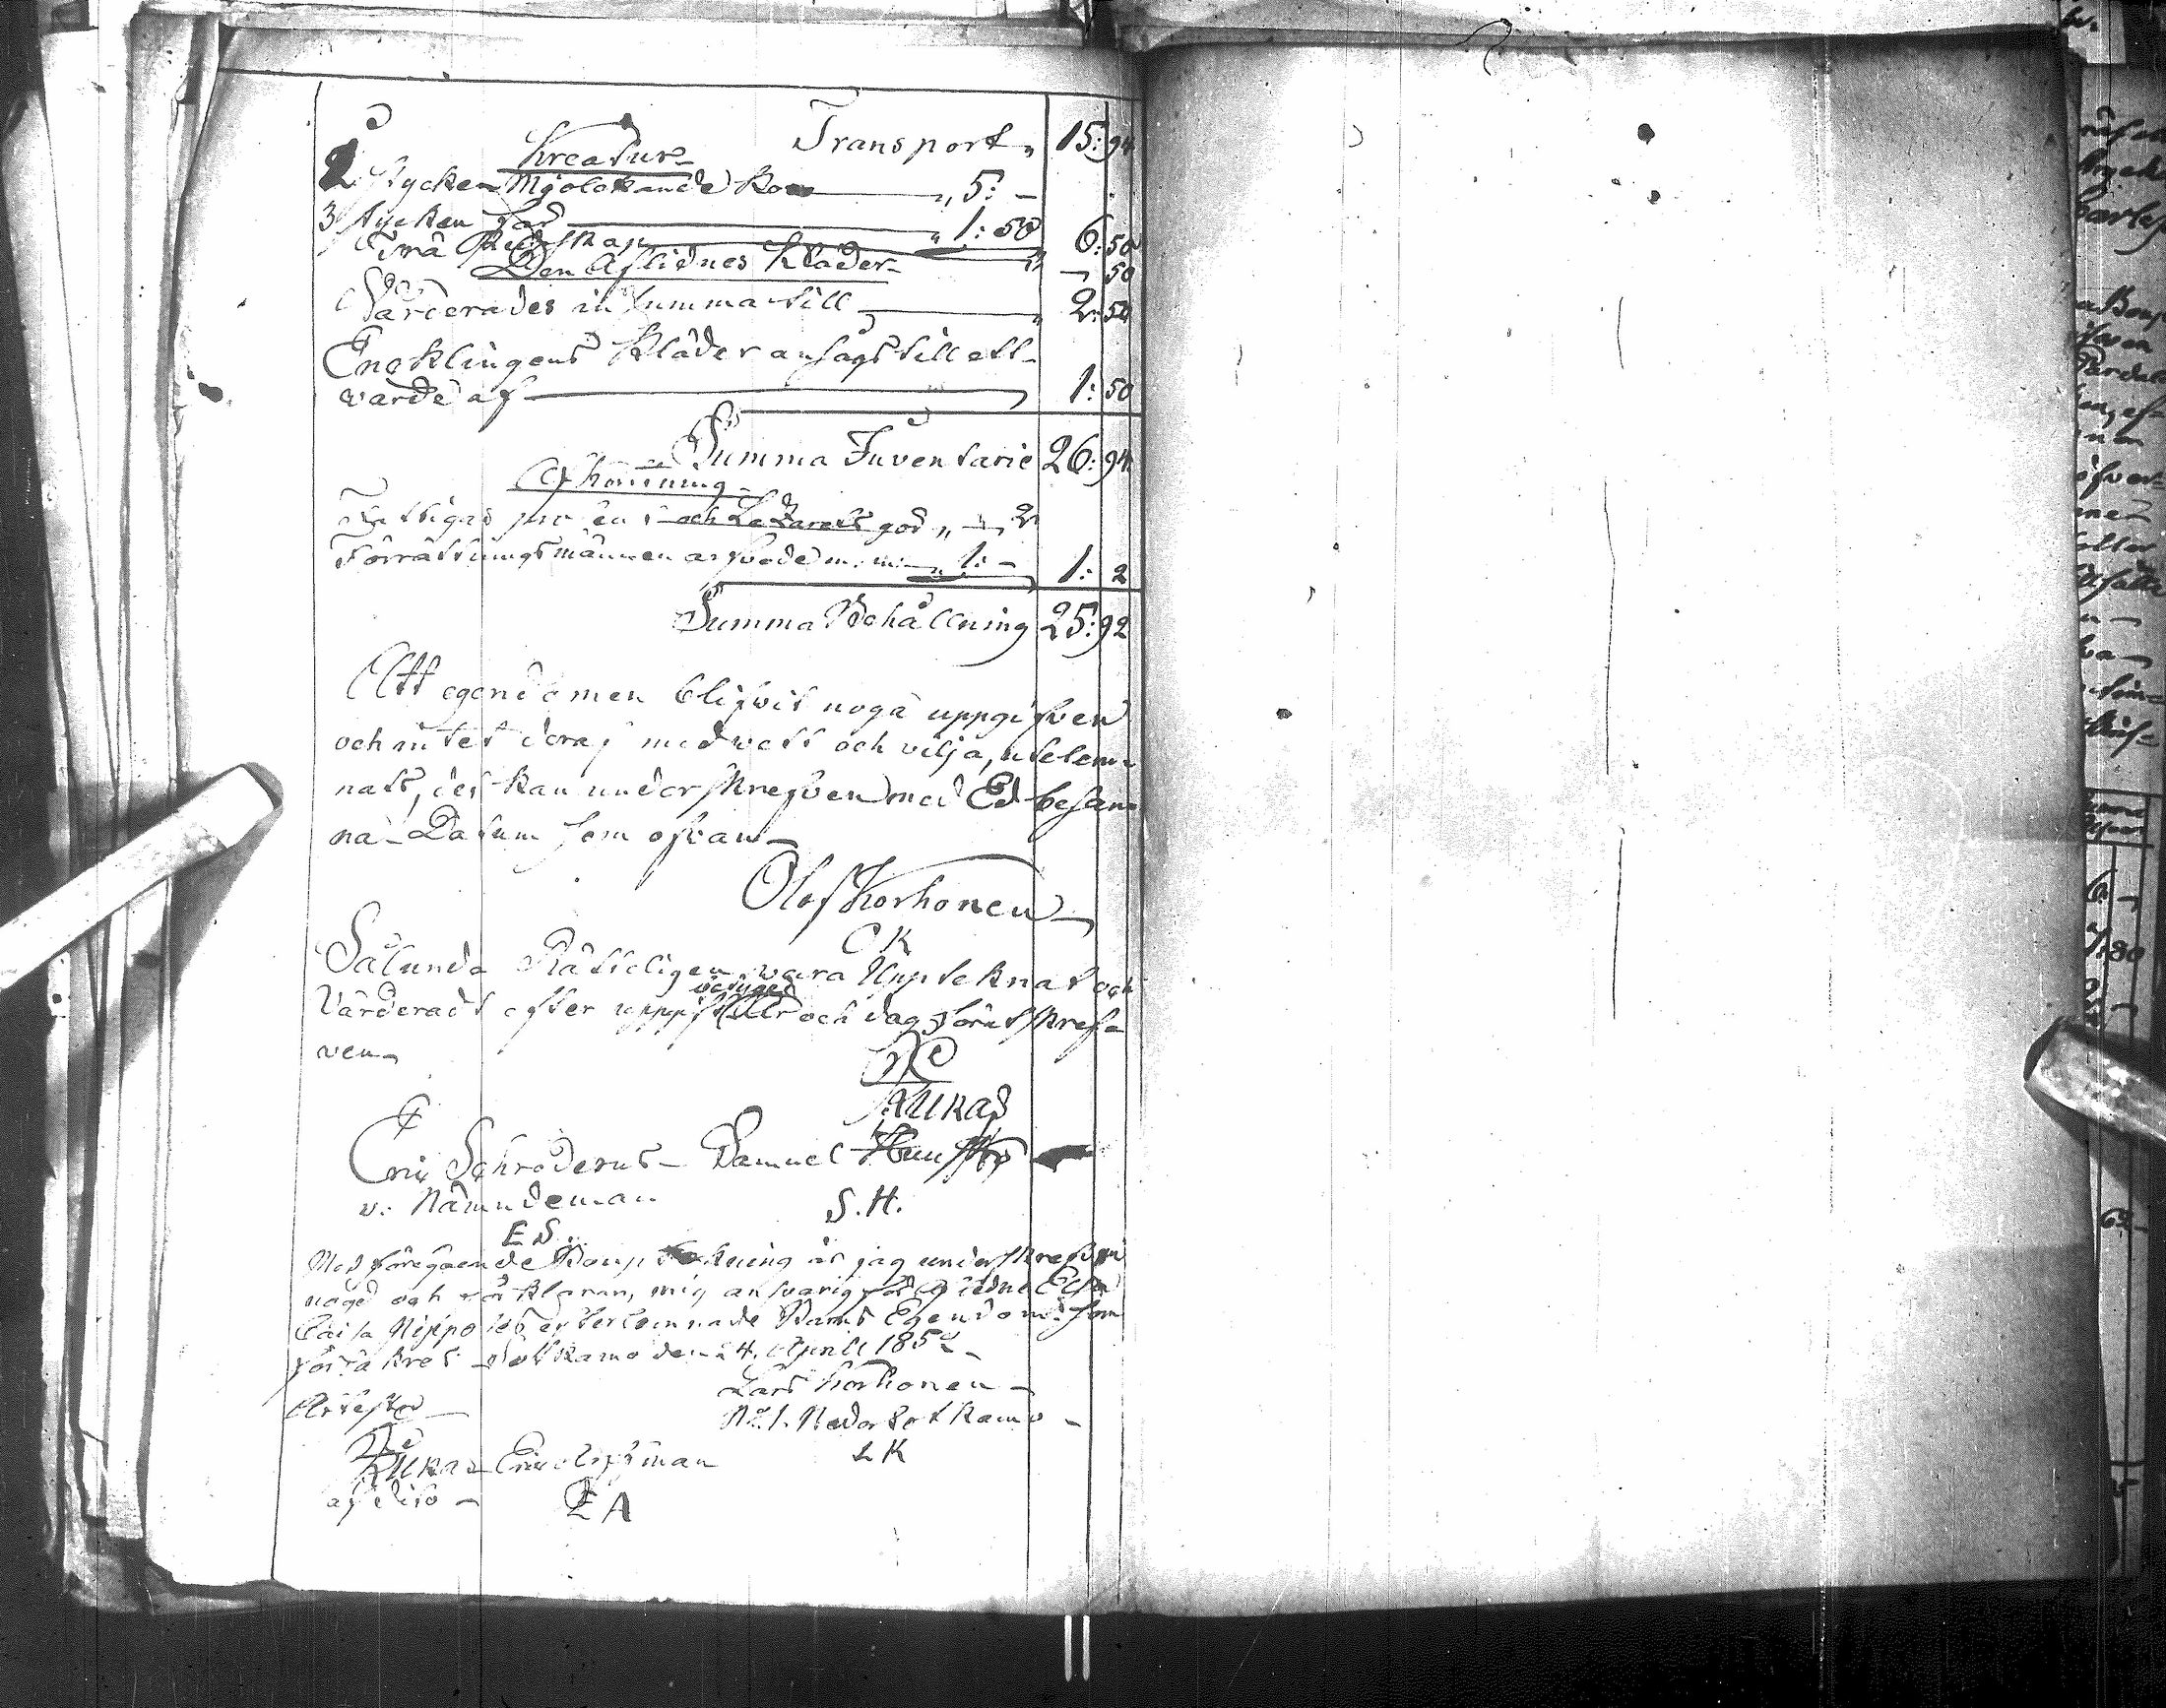 Transport „ 15: 94
Kreatur
2 stycken Mjolckande ko „ 5: –
3 stycken Får „ 1: 50 6: 50
Trä Redskap „ – 50
Den Aflidnes Kläder
Värderades in summa till „ 2: 50
Encklingens Kläder ansågs till ett
värde af 1: 50
Summa Inventarie 26: 94
Afkortning
Fattigas procent och Lazarett god „ – 2
Förrättningsmännen arfvode m. m. „ 1: – 1: 2
Summa Behållning 25: 92
Att egendomen blifvit noga uppgifven
och intet deraf med vett och vilja, utelem-
nats, det kan underskrefven med Ed besan-
na – Datum som ofvan –
Olof Korhonen
O K
Sålunda Rätteligen vara Upteknat och
betyger
Värderadt efter uppgift År och dag förutskref-
ven
Eric Schroderus – Samuel
v. Nämndeman S. H.
E S
Med föregående Boupteckning är jag underskrefven
nögd och förklarar, mig ansvarig för Aflidne Elsa
Caisa efterlemnade Barns Egendom. som
försäkras Sotkamo den 24 Aprill 185
Lars Korhonen –
No 1. Nedersotkamo –
L K
Eric
E A